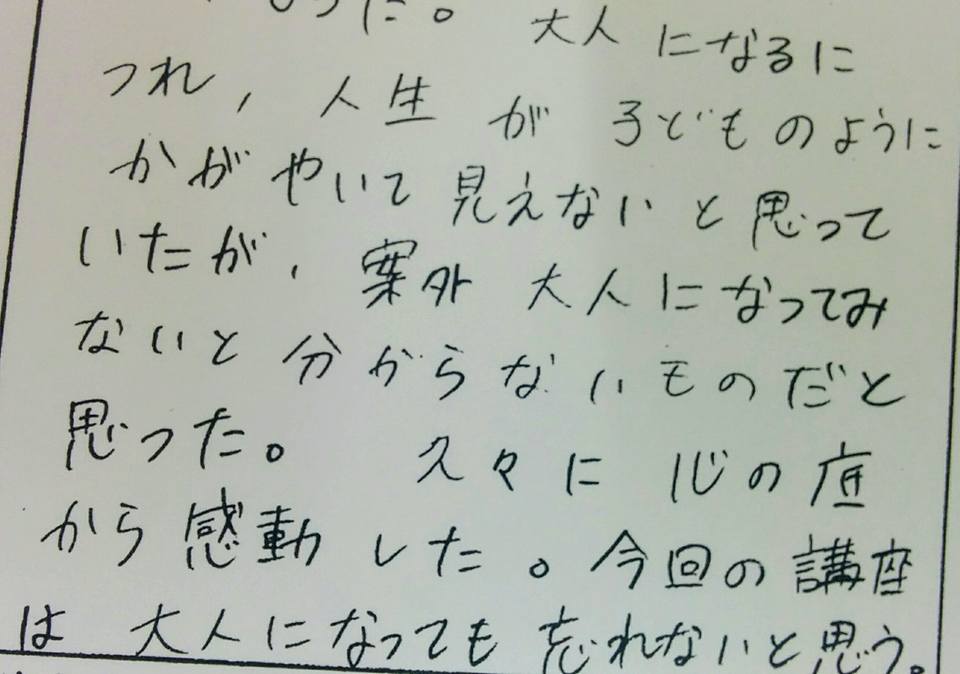 った。 大人になるに
つれ, 人生が子どものように
かがやいて見えないと思って
いたが, 案外大人になってみ
ないと分からないものだと
思った。 久々に心の底
から感動した。今回の講座
は大人になっても忘れないと思う。